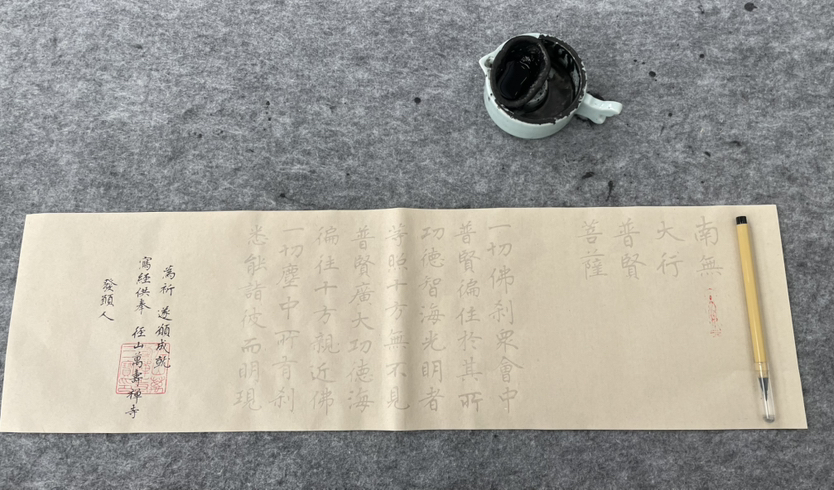 南無
大行
普賢
菩薩
一切佛剎眾會中
普賢徧住於其所
功德智海光明者
等照十方無不見
普賢廣大功德海
徧往十方親近佛
一切塵中所有剎
悉能詣彼而明現
萬祈 遂願成就
寫經供奉 徑山萬壽禪寺
發願人